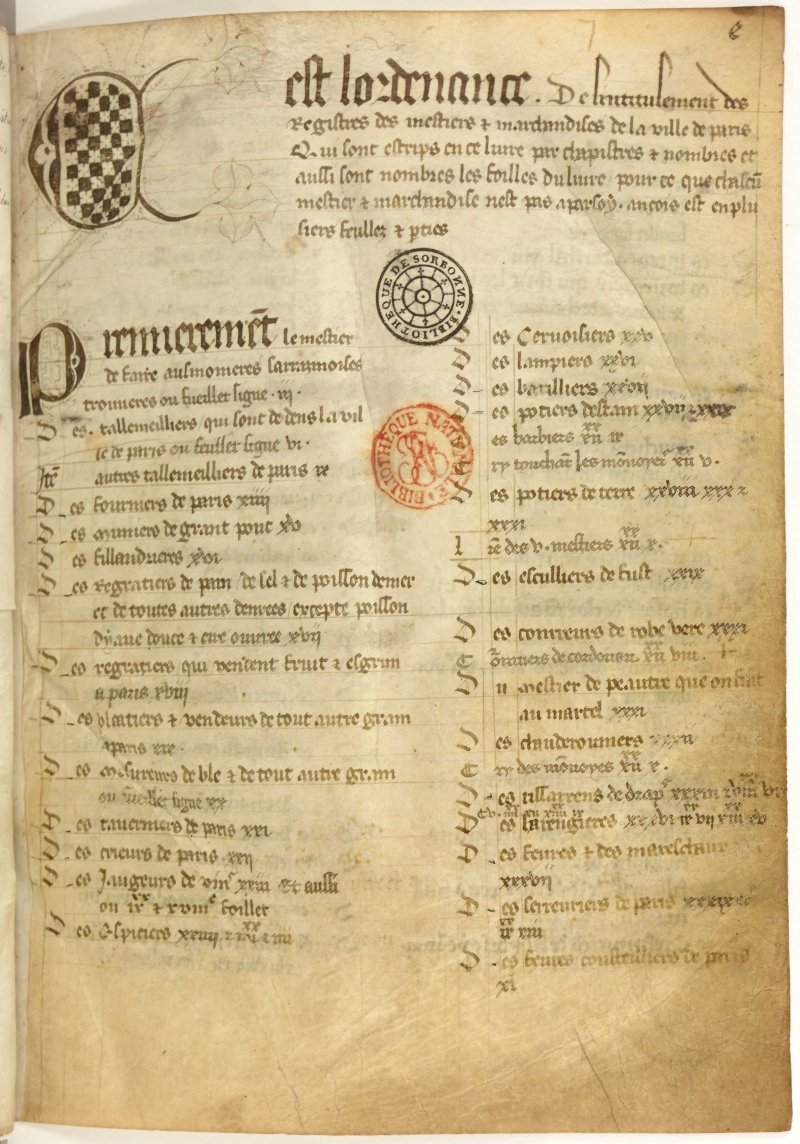 e
Cest lordenance. De lentitulement des
Registres des mestiers & marchandises de la ville de paris
Qui sont escrips en ce livre par chapistres & nombres et
aussi sont nombres les foilles du livre pour ce que chascũ
mestier & marchandise nest pas aparsoy. ancois est en plu
siers feullez & pties
BIBLIOTHEQUE DE SORBONNE
BIBLIOTHÈQUE NATIONALE
Premierement le mestier
de faire ausmonieres sarrazinoises
trouveres ou fueillet signe. iii.
Des. tallemelliers qui sont dedens la vil
le de paris ou feullet signe vi.
Itē autres tallemelliers de paris ix
Des fourniers de paris xiiii
Des muniers de grant pont xv
Des fillandrieres xvi
Des Regratiers de pain de sel & de poisson de mer
et de toutes autres denrees excepte poisson
dyaue douce & cire ouvree xvii
Des regratiers qui vendent fruit & esgrun
a paris xviii
Des blaetiers & vendeurs de tout autre grain
a paris xix.
Des Mesureurs de ble & de tout autre grain
ou fueillet signe xx
Des taverniers de paris xxi
Des crieurs de paris xxii
Des Jaugeurs de vins xxiii Et aussi
foillet
Des Espiciers xxiiii
Des Cervoisiers xxv
Des lampiers xxvi
Des barilliers xxvii
Des potiers destain xxviii & xxix
es barbiers
Des potiers de terre xxviii xxx &
xxxi
des v. mestiers
Des esculliers de fust xxix
Des conrreurs de robe vere xxxi
de cordouan. viii.
Du mestier de peautre que on fiert
au martel xxxi
Des chauderonniers xxxii
des monoyes
Des tissarrens de draps xxxiii
Des
Des fevres & des mareschaux
xxxvii
Des serreuriers de paris xxxix
Des fevres cousteilliers de paris
xl